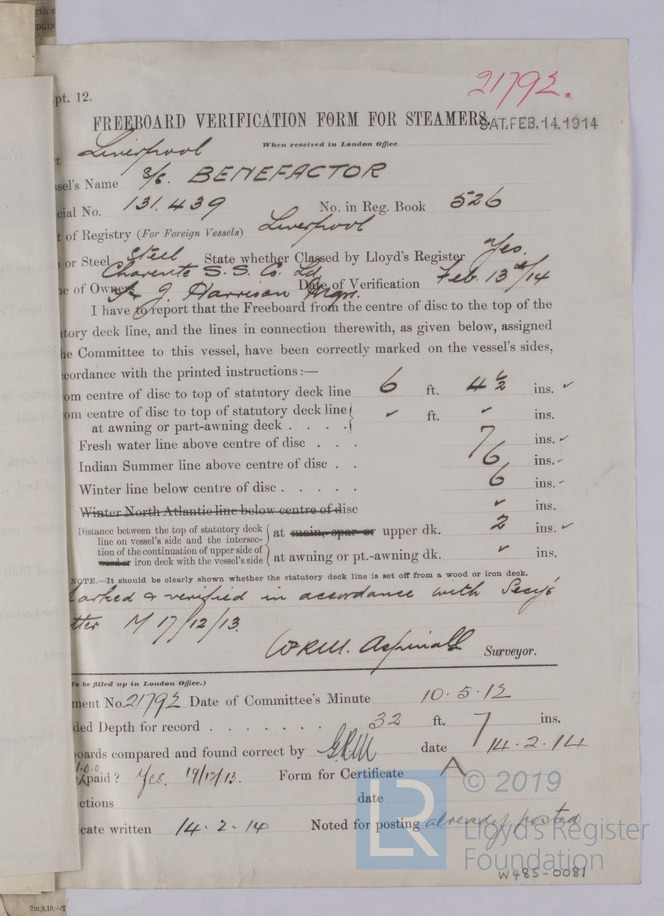 pt. 12.
2179Σ.
FREEBOARD VERIFICATION FORM FOR STEAMERS.
SAT.FEB.14.1914
When received in London Office
Liverpool
ssel's Name S/S. BENEFACTOR
cial No. 131.439 No. in Reg. Book 526
t of Registry (For Foreign Vessels) Liverpool
or Steel Steel State whether Classed by Lloyd's Register Yes.
Charente S.S. Co. Ld
e of Owners J. Harrison Mgrs. Date of Verification Feb. 13th/14
I have to report that the Freeboard from the centre of disc to the top of the
tory deck line, and the lines in connection therewith, as given below, assigned
he Committee to this vessel, have been correctly marked on the vessel's sides,
cordance with the printed instructions :—
om centre of disc to top of statutory deck line 6 ft. 4½ ins. ✓
om centre of disc to top of statutory deck line
at awning or part-awning deck . . . . ✓ ft. ✓ ins.
Fresh water line above centre of disc . . . 7 ins. ✓
Indian Summer line above centre of disc . . 6 ins.
Winter line below centre of disc . . . . . 6 ins.
Winter North Atlantic line below centre of disc ✓ ins.
Distance between the top of statutory deck
line on vessel's side and the intersec-
tion of the continuation of upper side of
wood or iron deck with the vessel's side
at main, spar or upper dk. 2 ins. ✓
at awning or pt.-awning dk. ✓ ins.
NOTE.—It should be clearly shown whether the statutory deck line is set off from a wood or iron deck.
arked & verified in accordance with Secy's
tter M 17/12/13.
Aspinall Surveyor.
To be filled up in London Office.)
ment No. 2179Σ Date of Committee's Minute 10.5.12
ded Depth for record . . . . . . . . 32 ft. 7 ins.
oards compared and found correct by date 14.2.14
paid ? Yes. 19/12/13. Form for Certificate A
ctions date
cate written 14.2.14 Noted for posting already posted
LR
© 2019
Lloyd's Register
Foundation
W485-0081